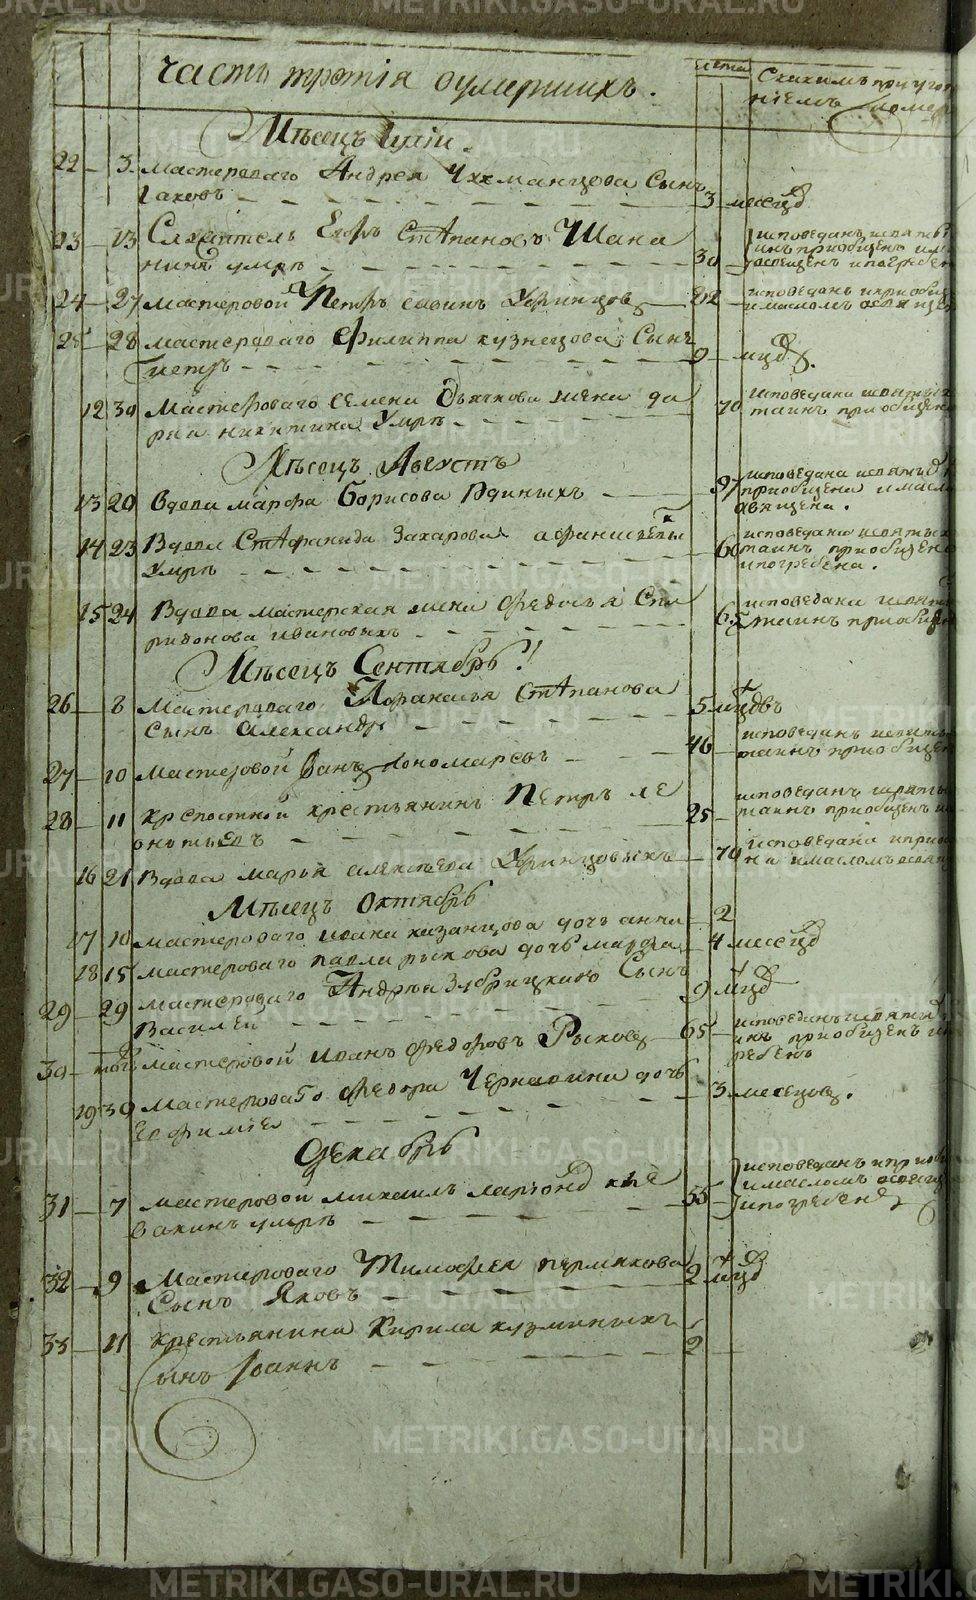 часть третія оумершихъ.
лета
Скакимъ приугот
ніемъ помер
Мѣсецъ Іулiи.
22 3 мастероваго Андрея Сынъ
Іаковъ 3 месецъ
23 13 Служитель Егоръ Стѣпановъ Шана
нинъ умрѣ 30 исповеданъ исвятых
инъ приобщенъ има
освещенъ ипогребен
24 27 мастеровой Петръ савинъ Уфинцовъ 22 исповеданъ иприобще
имасломъ освящен
25 28 мастероваго Филиппа кузнецова Сынъ
Петръ 9 мцъ.
12 30 Мастероваго Семена Дьячкова жена да
рия никитина Умрѣ 70 исповедана исвятых
таинъ приобщена
Мѣсецъ Августъ
13 20 Вдова марфа Борисова 97 исповедана исвятыхъ
приобщена имасло
освящена.
14 23 Вдова Стѣфанида Захарова
Умрѣ 60 исповедана исвятых
таинъ приобщена
ипогребена.
15 24 Вдова мастерская жена Федосья Спи
ридонова ивановыхъ 65 исповедана исвяты
таинъ приобще
Мѣсецъ Сентябрь!
26 8 Мастероваго Афанасья Стѣпанова
сынъ Александръ 5 мцовъ
27 10 Мастеровой Іванъ Пономаревъ 46 исповеданъ исвяты
таинъ приобщен
28 11 крепостной крестьянинъ Петръ ле
онтьевъ 25 исповеданъ исвяты
таинъ приобщенъ и
16 21 Вдова марья алексѣева Уфинцовыхъ 70 исповедана иприоб
на имасломъ освящ
Мѣсецъ Октябрь
17 10 мастероваго ивана казанцова дочь анна 2
18 15 мастероваго павла рыкова дочь марфа 4 месецъ
29 29 мастероваго Андрѣя Збрицкаго Сынъ
Василей 9 мцъ
30 тогъ мастеровой иванъ Федоровъ Рыковъ 65 исповеданъ исвятых
инъ приобщенъ ип
ребенъ
19 30 Мастероваго Федора Чернавина дочь
Ефимiя 3 месецовъ.
Декабрь
31 7 мастеровой михаилъ
умрѣ 55 исповеданъ иприоб
имасломъ освящ
ипогребенъ
32 9 Мастероваго Тимофея пермякова
Сынъ Яковъ 2 мцъ
33 11 крестьянина Кирила кузминыхъ
Сынъ Іоаннъ 2
METRIKI.GASO-URAL.RU